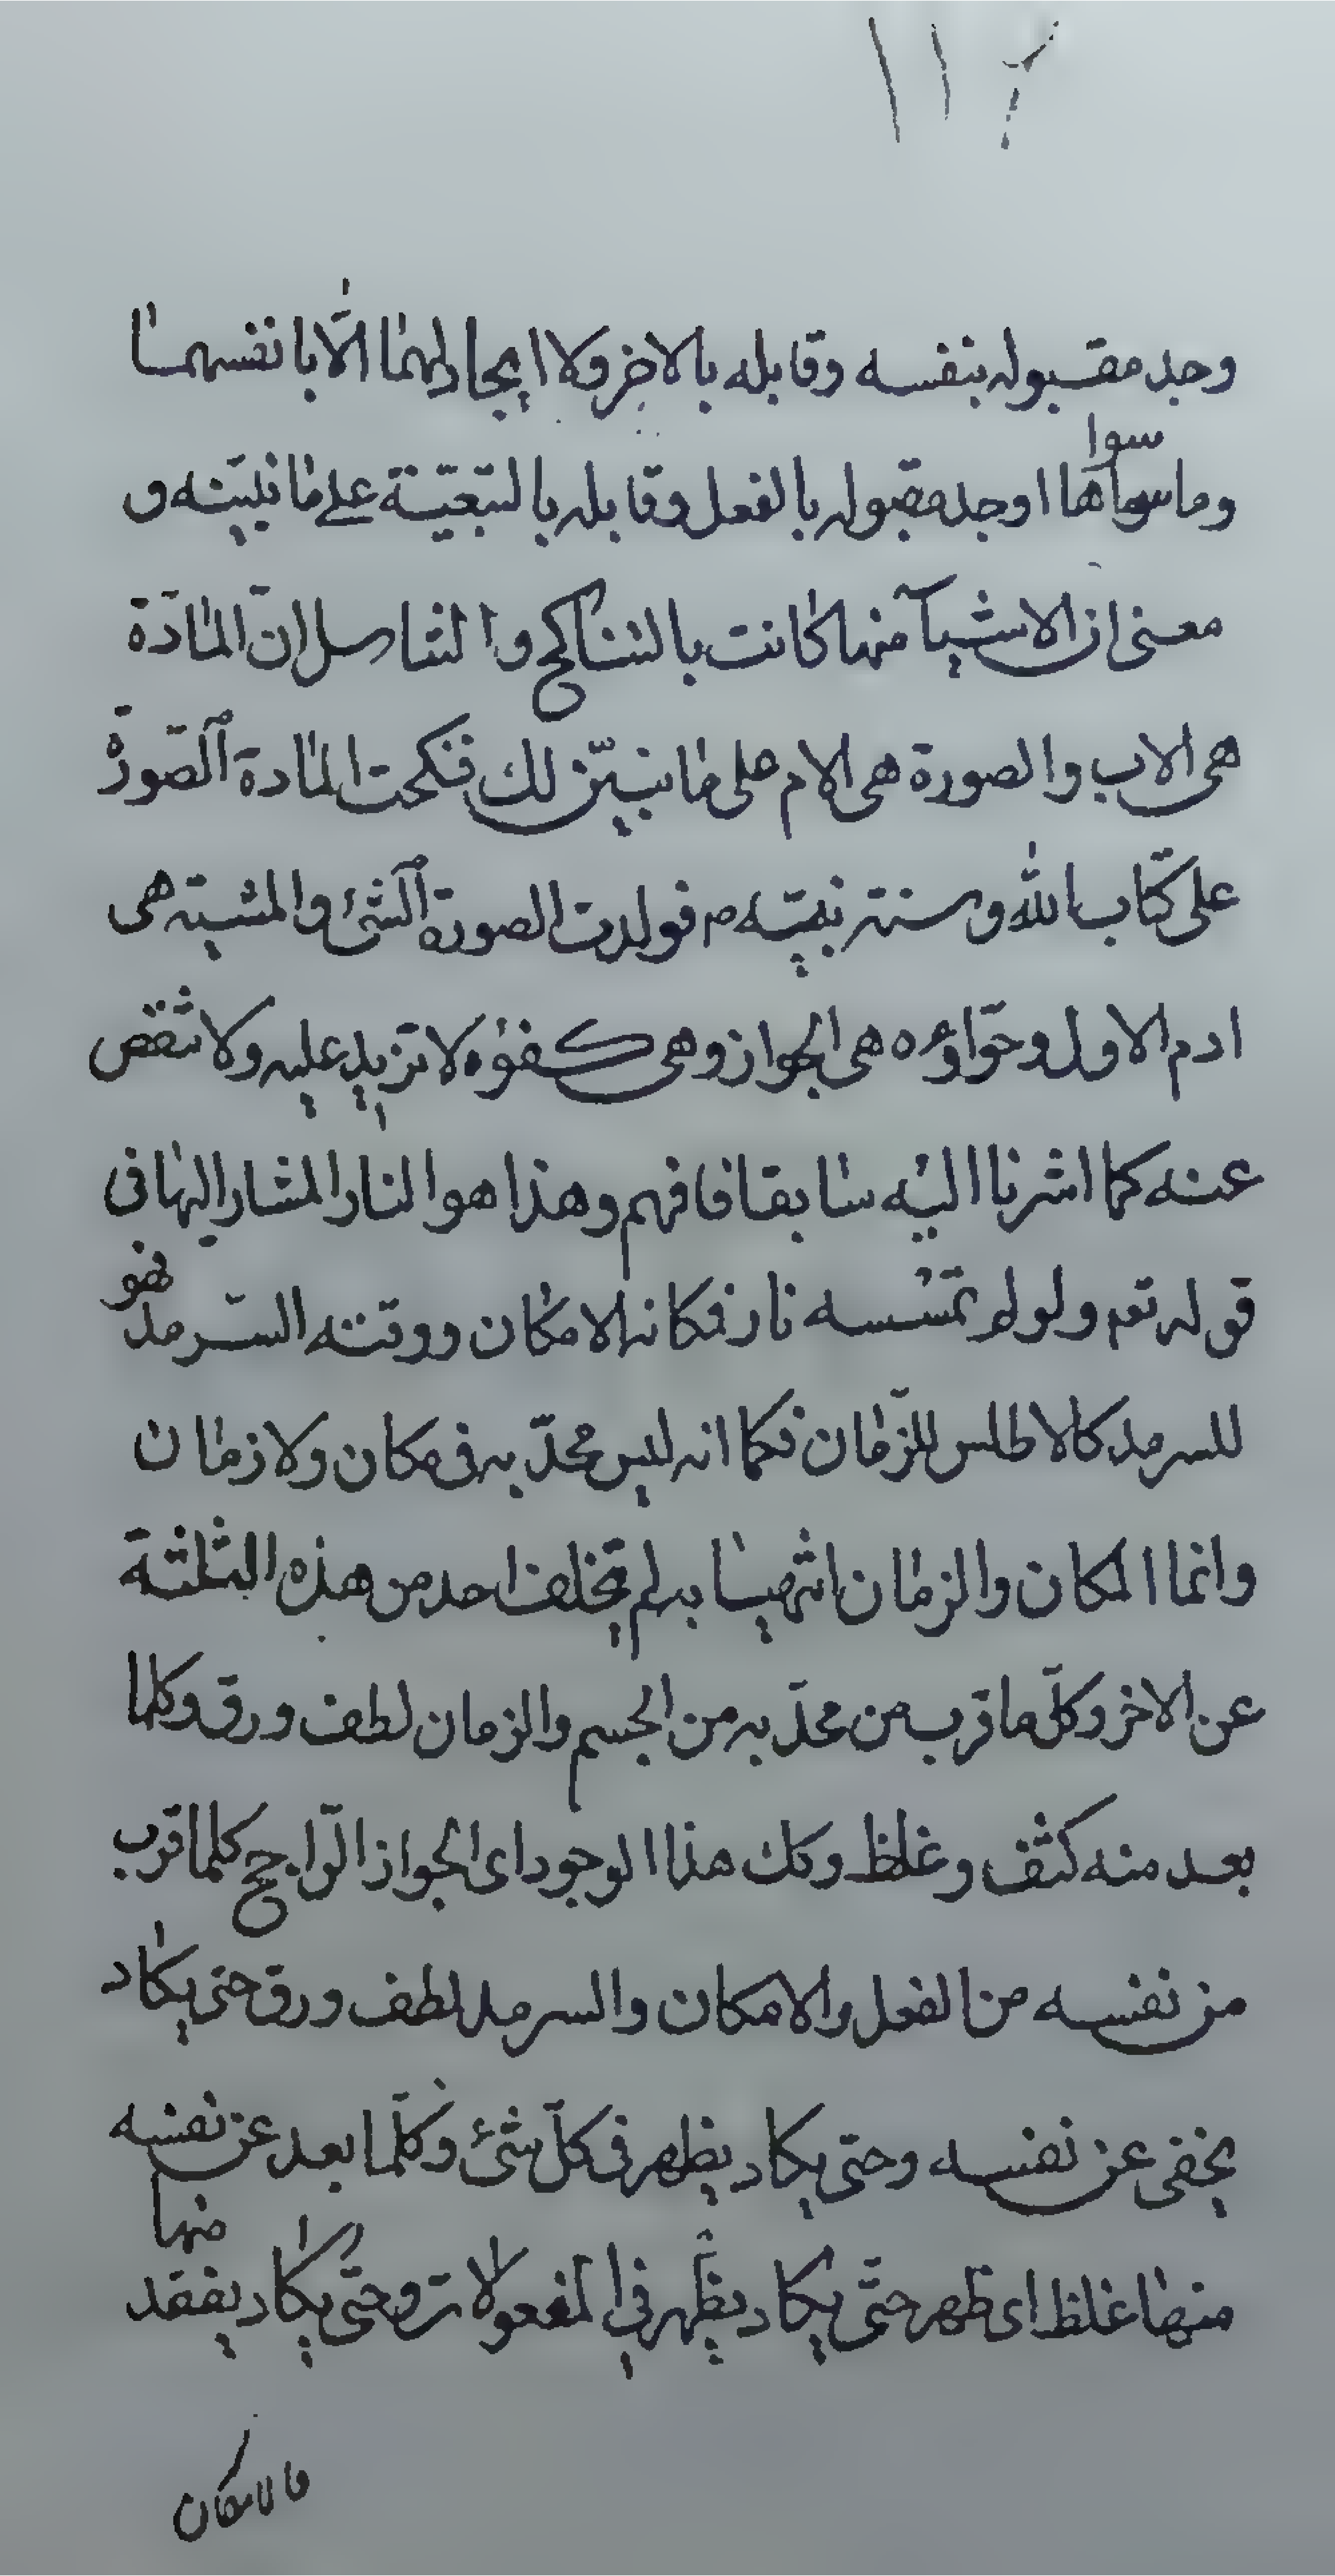 ١١٢
وجد مقبوله بنفسه وقابله بالاخر ولا ايجاد لهما الّا بانفسهما
سوا
وما سواها اوجد مقبوله بالفعل وقابله بالتبعيّة على ما نبيّنه و
معنى ان الاشيآء منها كانت بالتناكح والتناسل انّ المادّة
هى الاب والصورة هى الام على ما نبيّن لك فنكحت المادة الصّورة
على كتاب الله وسنته نبيّه ص فولدت الصورة الشئ والمشية هى
ادم الاول وحوّاؤه هى الجواز وهى كفؤه لا تزيد عليه ولا تنقص
عنه كما اشرنا اليه سابقا فافهم وهذا هو النار المشار اليها فى
قوله تعم ولو لم تمسسه نار فكانه الامكان ووقته السّرمد فهو
للسرمد كالاطلس للزّمان فكما انه ليس محدّبه فى مكان ولا زمان
وانما المكان والزمان انتهيا به لم يتخلف احد من هذه الثلثة
عن الاخر وكلّ ما قرب من محدّبه من الجسم والزمان لطف ورق وكلما
بعد منه كثف وغلظ وكك هذا الوجود اى الجواز الرّاجح كلما قرب
من نفسه من الفعل والامكان والسرمد لطف ورق حتى يكاد
يخفى عن نفسه وحتى يكاد يظهر فى كلّ شئ وكلّما بعد عن نفسه
منها
منها غلظ اى ظهر حتّى يكاد يظهر فى المفعولات وحتّى يكاد يفقد
فالامكان